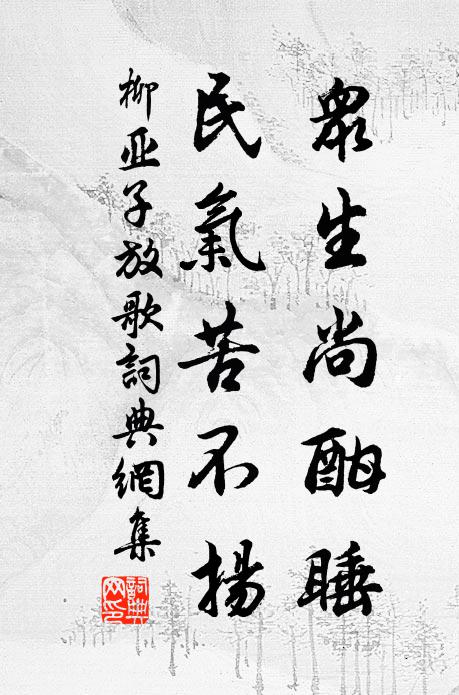 眾生尚酣睡
民氣苦不揚
柳亚子放歌詞典網集
詞典网印